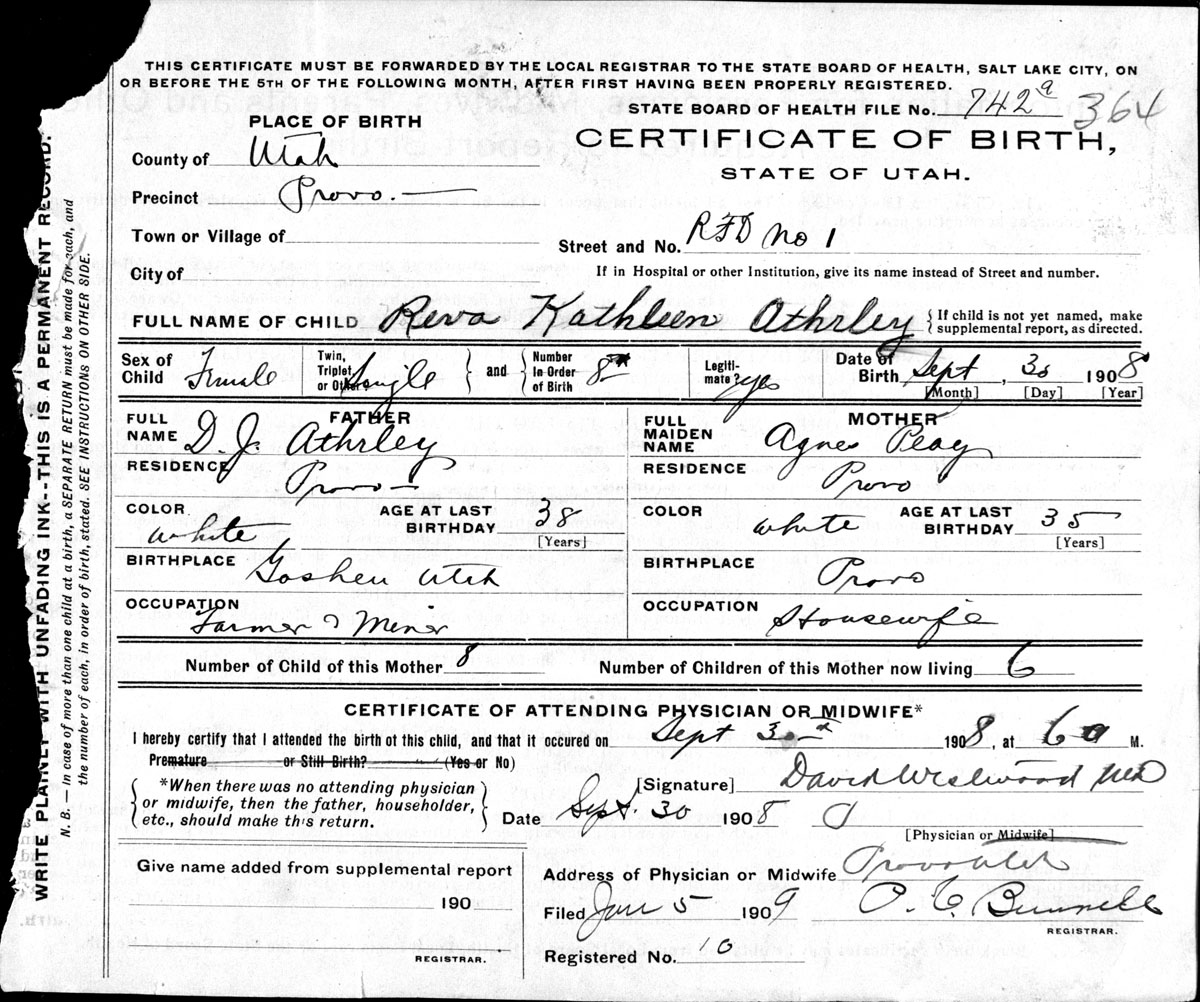 THIS CERTIFICATE MUST BE FORWARDED BY THE LOCAL REGISTRAR TO THE STATE BOARD OF HEALTH, SALT LAKE CITY, ON
OR BEFORE THE 5TH OF THE FOLLOWING MONTH, AFTER FIRST HAVING BEEN PROPERLY REGISTERED.
STATE BOARD OF HEALTH FILE No. 742a 364
PLACE OF BIRTH
CERTIFICATE OF BIRTH,
STATE OF UTAH.
County of Utah
Precinct Provo.
Town or Village of
Street and No. RFD No 1
City of
If in Hospital or other Institution, give its name instead of Street and number.
FULL NAME OF CHILD Reva Kathleen Athrley { If child is not yet named, make
supplemental report, as directed.
Sex of Child Female
Twin, Triplet, or Other? Single } and { Number In Order of Birth 8th
Legitimate? yes
Date of Birth Sept, 30 1908
[Month] [Day] [Year]
FATHER
FULL NAME D. J. Athrley
MOTHER
FULL MAIDEN NAME Agnes Peay
RESIDENCE Provo
RESIDENCE Provo
COLOR white AGE AT LAST BIRTHDAY 38 [Years]
COLOR white AGE AT LAST BIRTHDAY 35 [Years]
BIRTHPLACE Goshen Utah
BIRTHPLACE Provo
OCCUPATION Farmer & Miner
OCCUPATION Housewife
Number of Child of this Mother 8 Number of Children of this Mother now living 6
CERTIFICATE OF ATTENDING PHYSICIAN OR MIDWIFE*
I hereby certify that I attended the birth of this child, and that it occured on Sept 30th 1908, at 6 a M.
Premature or Still Birth? (Yes or No)
*When there was no attending physician
or midwife, then the father, householder,
etc., should make this return.
[Signature] David Westwood MD
Date Sept. 30 1908
[Physician or Midwife]
Give name added from supplemental report
190
REGISTRAR.
Address of Physician or Midwife Provo Utah
Filed Jan 5 1909 O. C. Bunnell
REGISTRAR.
Registered No. 10
WRITE PLAINLY WITH UNFADING INK--THIS IS A PERMANENT RECORD.
N. B. — In case of more than one child at a birth, a SEPARATE RETURN must be made for each, and
the number of each, in order of birth, stated. SEE INSTRUCTIONS ON OTHER SIDE.